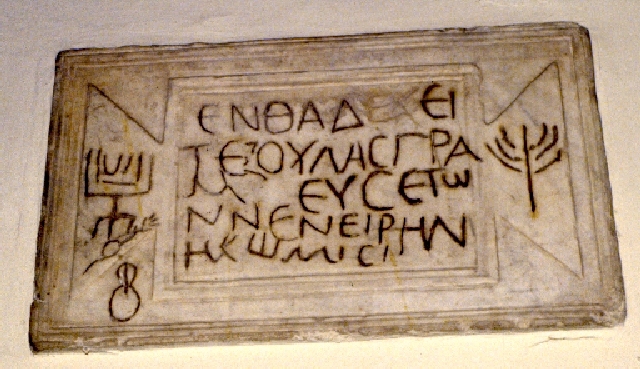 ΕΝΘΑΔΕΚΕΙ
ΤΕΖΟΥΝΑϹΓΡΑ
Μ ΕΥϹΕΤω
ΝΝΕΝΕΙΡΗΝ
ΗΚωΜΙϹΙ